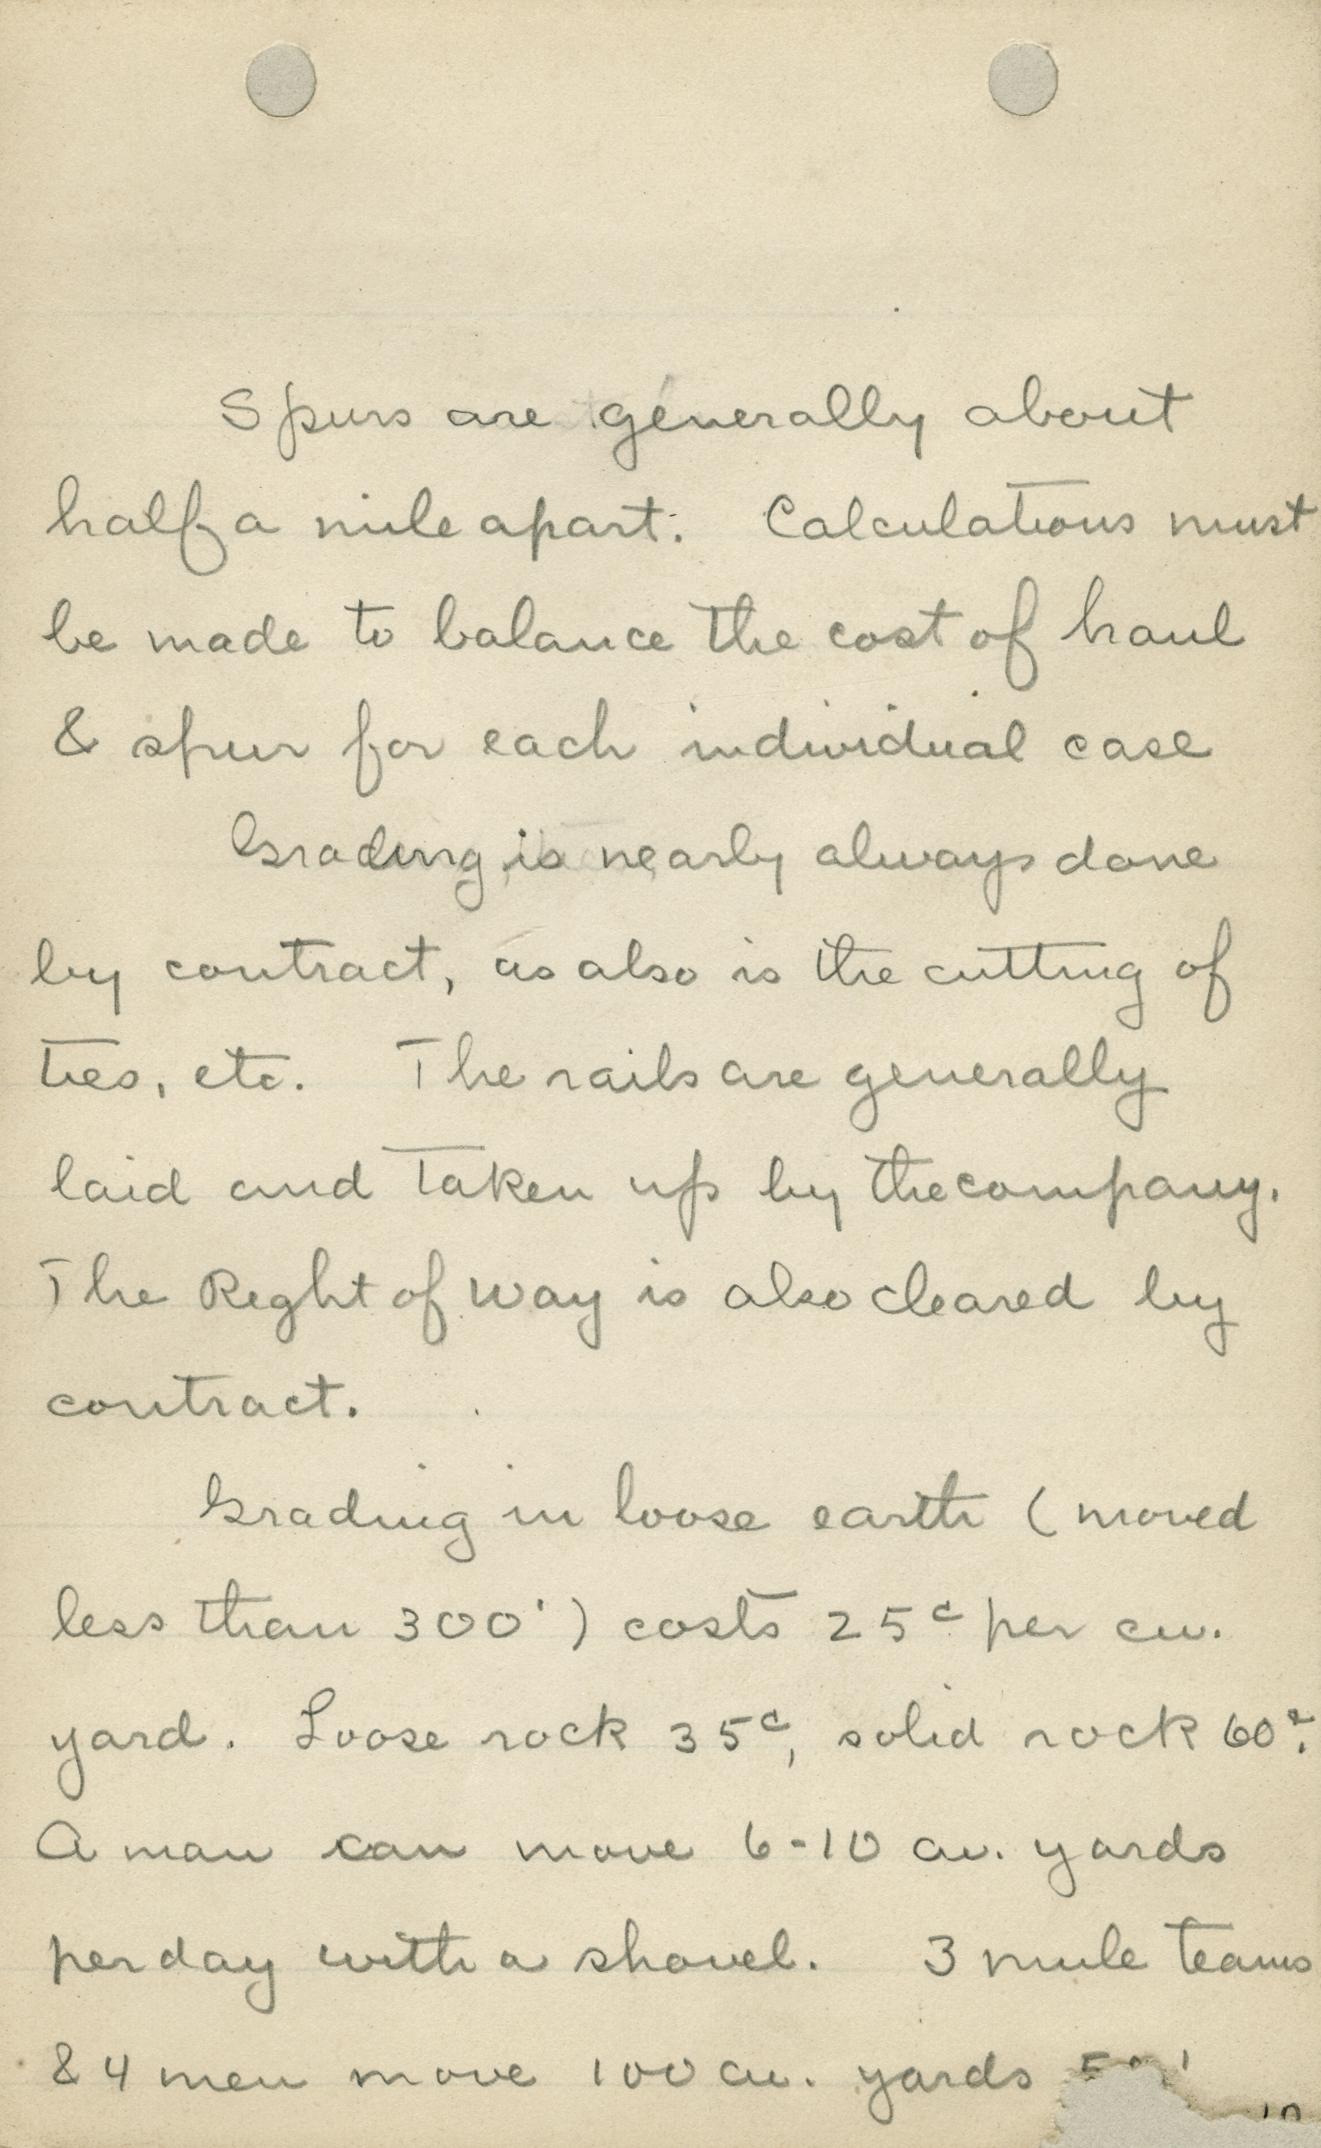 Spurs are generally about
half a mile apart. Calculations must
be made to balance the cost of haul
& spur for each individual case
Grading is nearly always done
by contract, as also is the cutting of
ties, etc. The rails are generally
laid and taken up by the company.
The Right of way is also cleared by
contract.
Grading in loose earth (moved
less than 300') costs 25c per cu.
yard. Loose rock 35c, solid rock 60c.
A man can move 6-10 cu. yards
per day with a shovel. 3 mule teams
& 4 men move 100 cu. yards